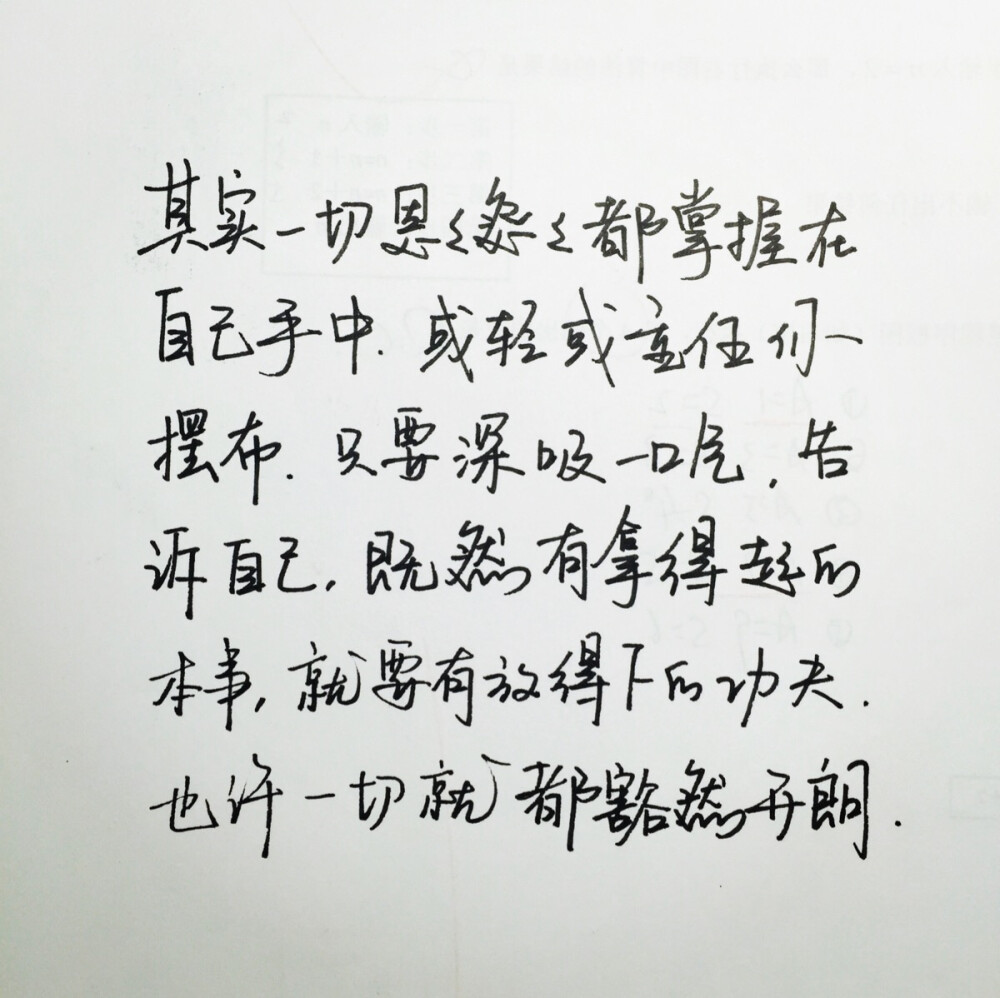 其实一切恩々怨々都掌握在
自己手中.或轻或重任们一
摆布.只要深吸一口气,告
诉自己,既然有拿得起的
本事,就要有放得下的功夫.
也许一切就都豁然开朗.